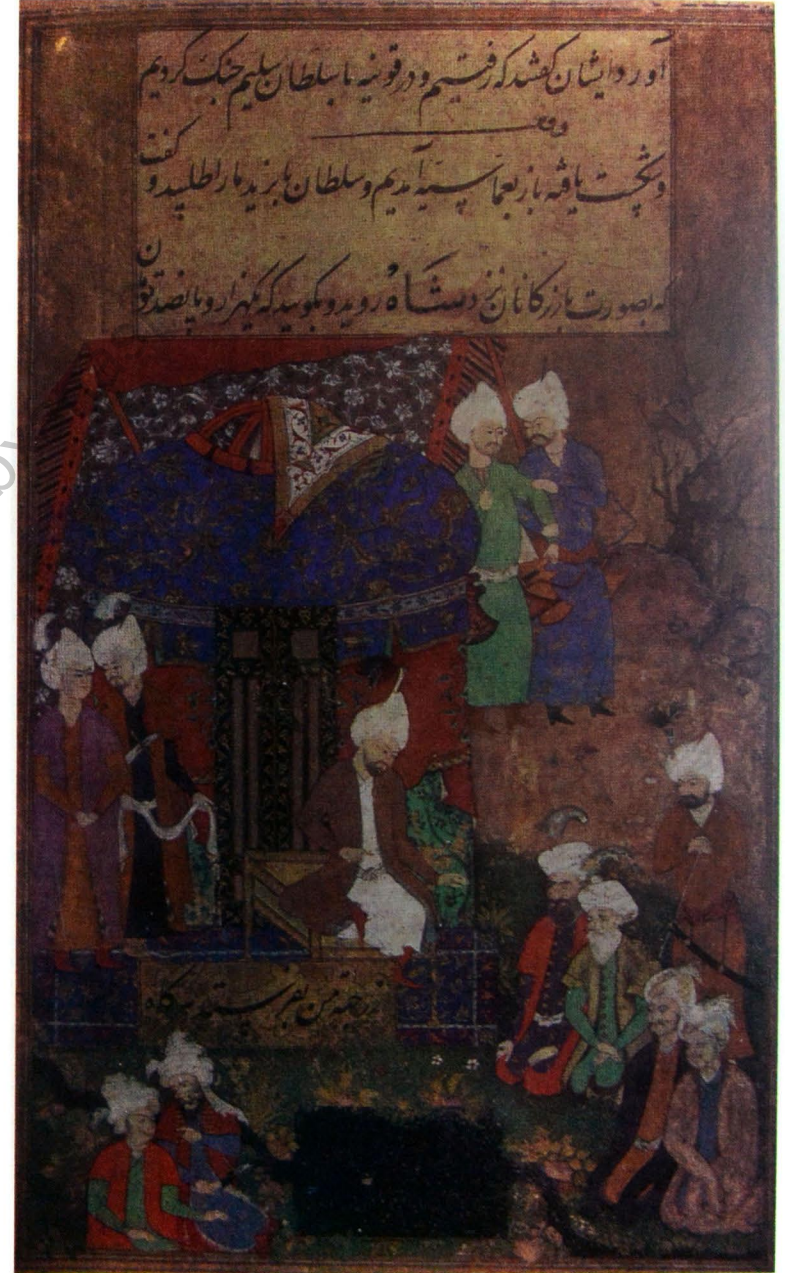 آورد ایشان گفتند که رفتیم و در قونیه با سلطان سلیم جنگ کردیم
و شکست یافته باز بعماسیه آمدیم و سلطان بایزید ما را طلبید و گفت
که بصورت بازرگانان نزد شاه روید و بگویید که یکهزار و پانصد تفن